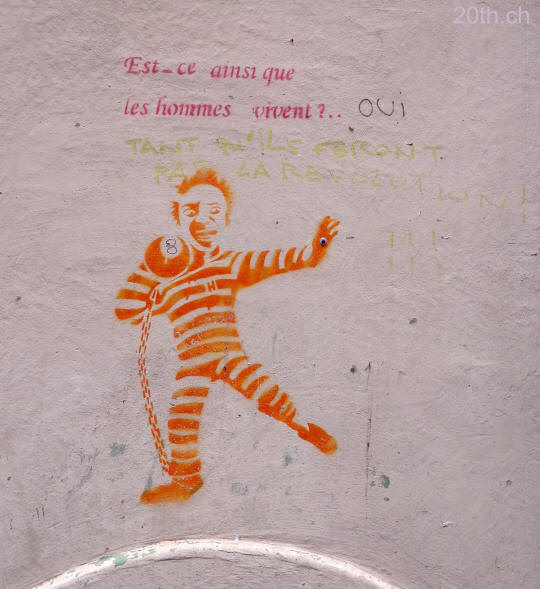 20th.ch
Est-ce ainsi que
les hommes vivent?.. OUI
TANT QU'ILS FERONT
PAS LA REVOLUTION!
!!!
!!!
8
H